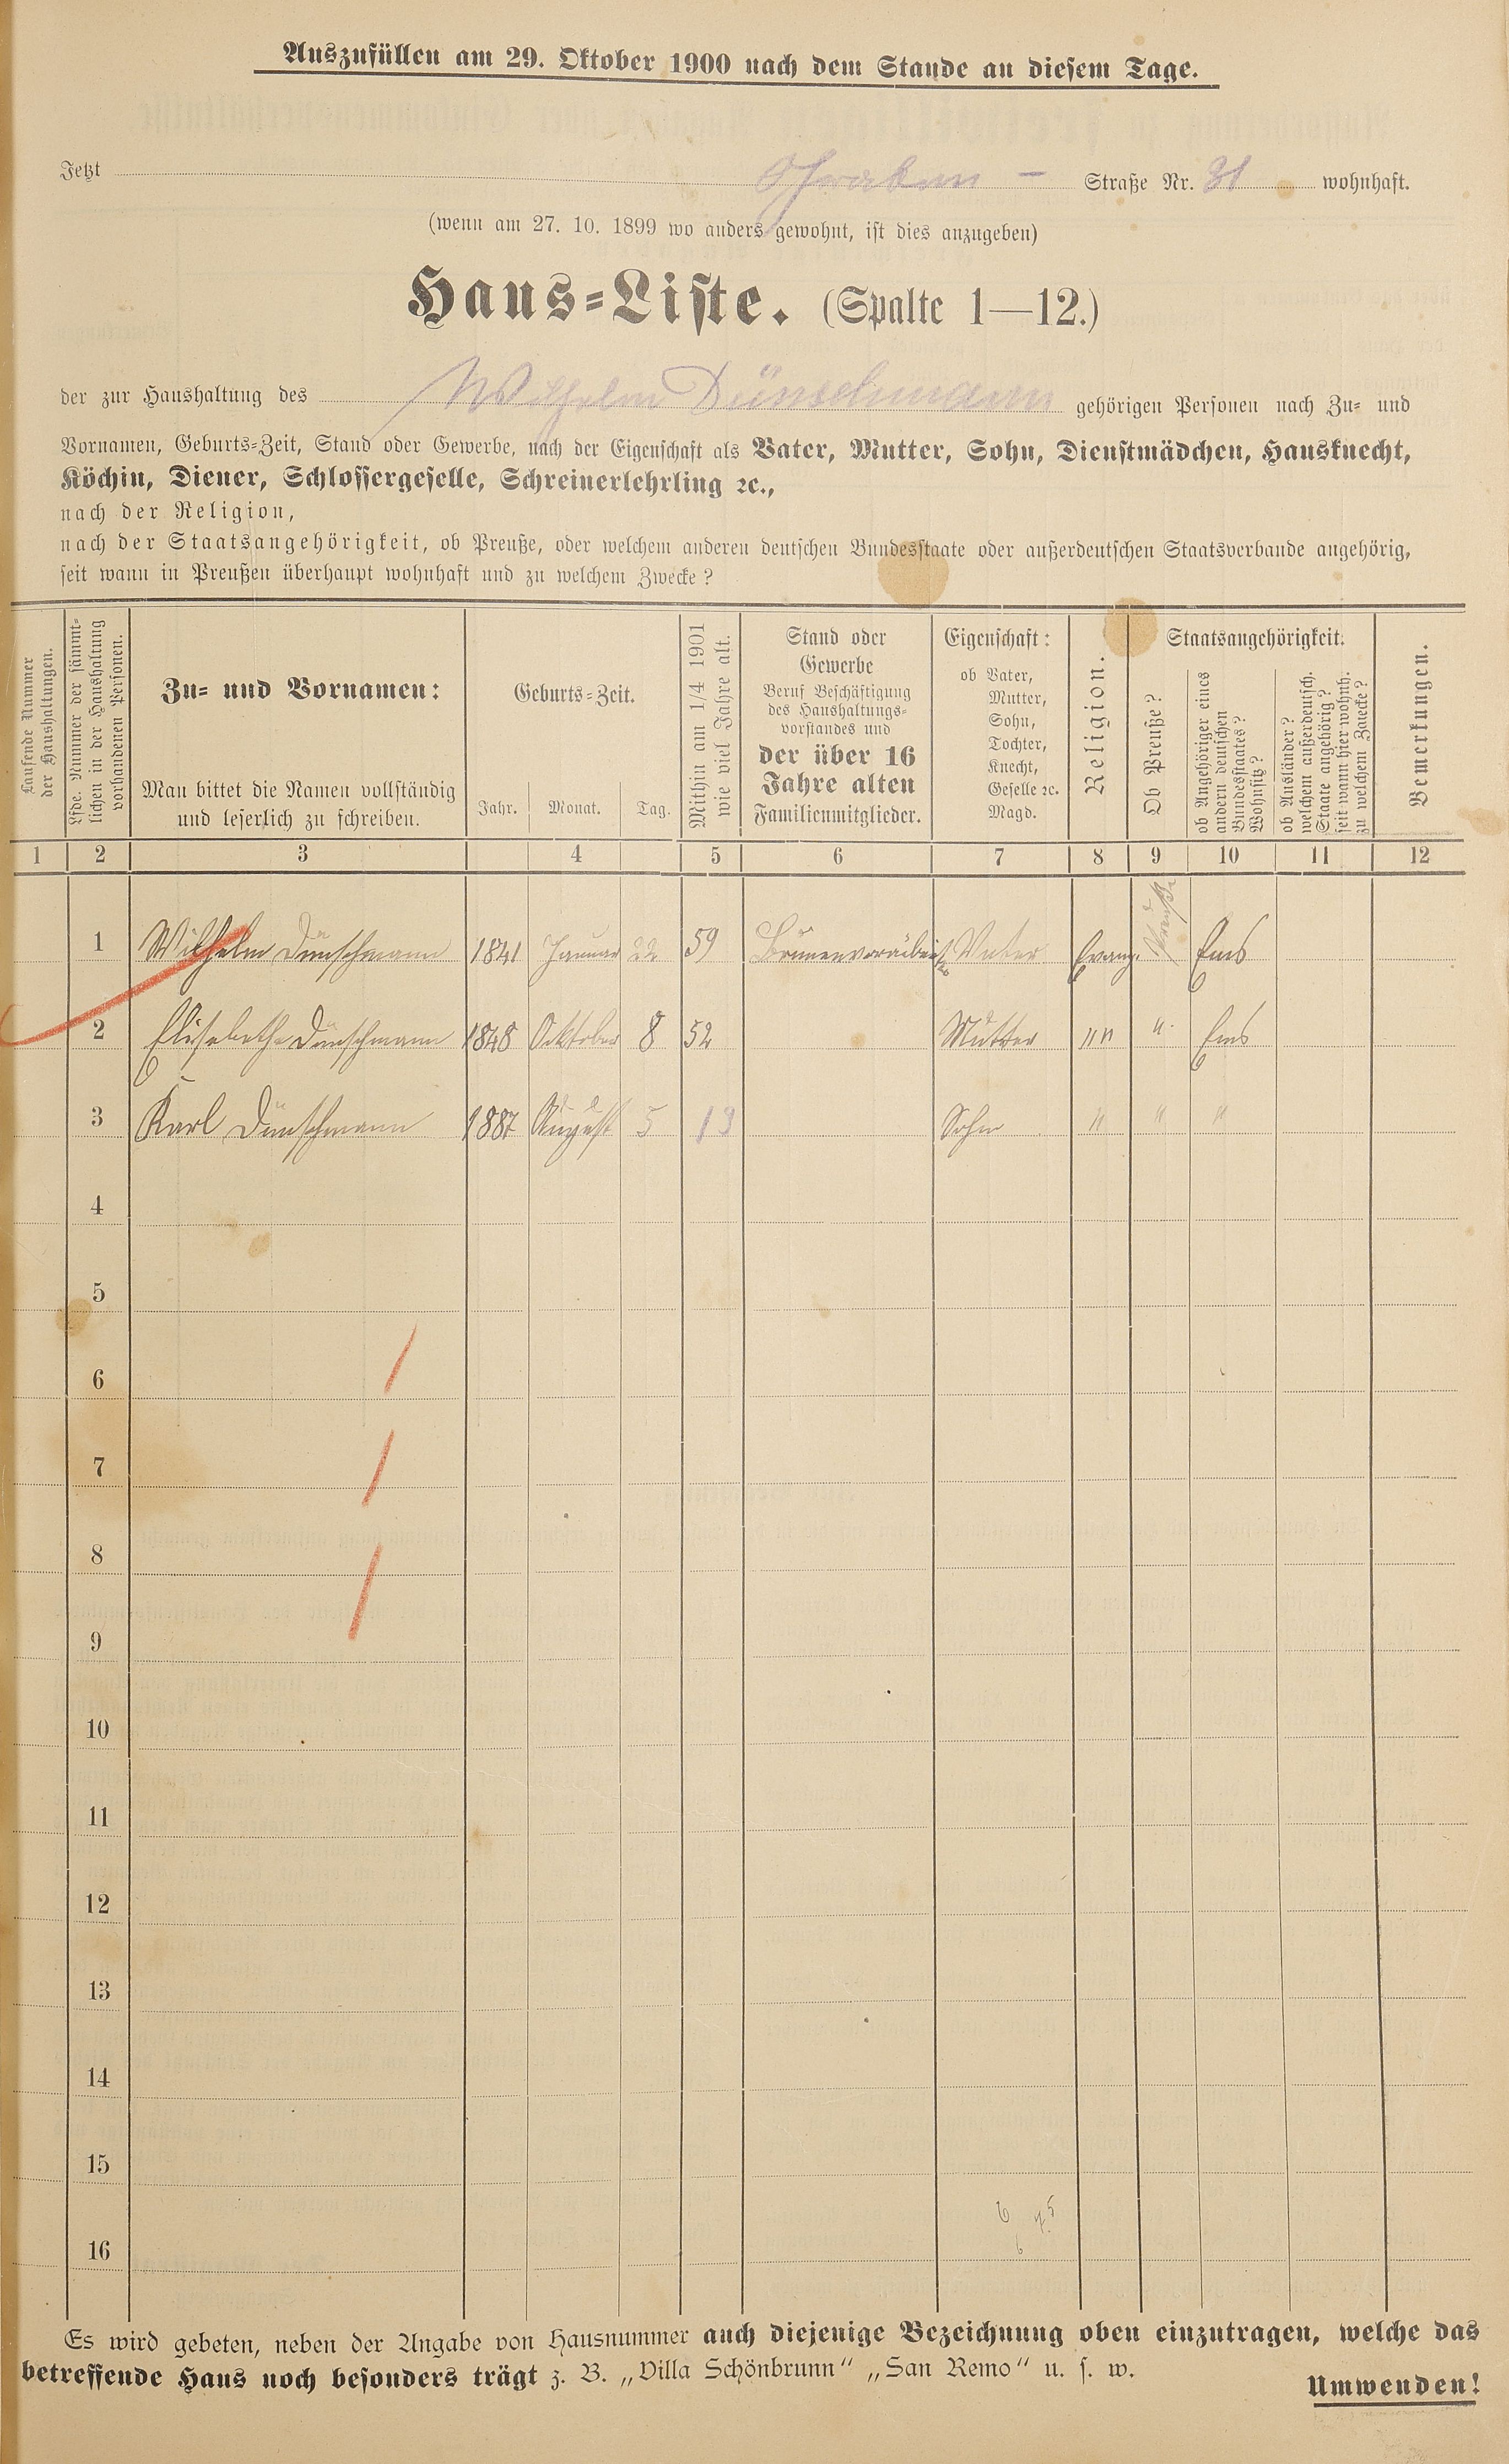 Auszufüllen am 29. Oktober 1900 nach dem Stande an diesem Tage.
Jetzt Graben - Straße Nr. 31 wohnhaft.
(wenn am 27. 10. 1899 wo anders gewohnt, ist dies anzugeben)
Haus-Liste. (Spalte 1—12.)
der zur Haushaltung des Wilhelm Dünschmann gehörigen Personen nach Zu- und
Vornamen, Geburts-Zeit, Stand oder Gewerbe, nach der Eigenschaft als Vater, Mutter, Sohn, Dienstmädchen, Hausknecht,
Köchin, Diener, Schlossergeselle, Schreinerlehrling ꝛc.,
nach der Religion,
nach der Staatsangehörigkeit, ob Preuße, oder welchem anderen deutschen Bundesstaate oder außerdeutschen Staatsverbande angehörig,
seit wann in Preußen überhaupt wohnhaft und zu welchem Zwecke?
Laufende Nummer
der Haushaltungen.
Lfde. Nummer der sämmt-
lichen in der Haushaltung
vorhandenen Personen.
Zu- und Vornamen:
Man bittet die Namen vollständig
und leserlich zu schreiben.
Geburts-Zeit.
Jahr. Monat. Tag.
Mithin am 1/4 1901
wie viel Jahre alt.
Stand oder
Gewerbe
Beruf Beschäftigung
des Haushaltungs-
vorstandes und
der über 16
Jahre alten
Familienmitglieder.
Eigenschaft:
ob Vater,
Mutter,
Sohn,
Tochter,
Knecht,
Geselle ꝛc.
Magd.
Religion.
Staatsangehörigkeit.
Ob Preuße?
ob Angehöriger eines
andern deutschen
Bundesstaates?
Wohnsitz?
ob Ausländer?
welchem außerdeutsch.
Staate angehörig?
seit wann hier wohnh.
zu welchem Zwecke?
Bemerkungen.
1 2 3 4 5 6 7 8 9 10 11 12
1 Wilhelm Dünschmann 1841 Januar 22 59 Vater Evang. Preuße Ems
2 Elisabetha Dünschmann 1848 Oktober 8 52 Mutter " " " Ems
3 Karl Dünschmann 1887 August 5 13 Sohn " " "
4
5
6
7
8
9
10
11
12
13
14
15
16
Es wird gebeten, neben der Angabe von Hausnummer auch diejenige Bezeichnung oben einzutragen, welche das
betreffende Haus noch besonders trägt z. B. „Villa Schönbrunn“ „San Remo“ u. s. w.
Umwenden!